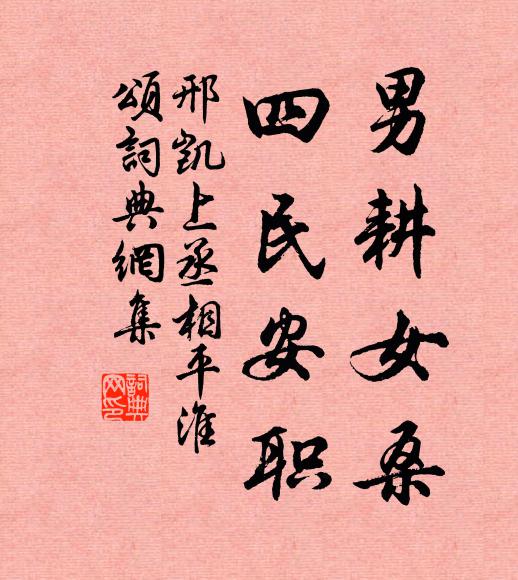 男耕女桑
四民安职
邢凱上丞相平淮
頌詞典網集
詞典网印